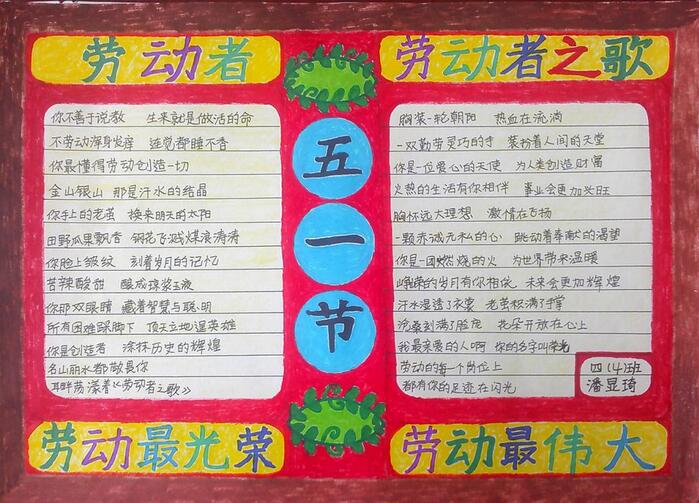 劳动者
你不善于说教 生来就是做活的命
不劳动浑身发痒 连觉都睡不香
你最懂得劳动创造一切
金山银山 那是汗水的结晶
你手上的老茧 换来明天的太阳
田野瓜果飘香 钢花飞溅煤浪涛涛
你脸上皱纹 刻着岁月的记忆
苦辣酸甜 酿成琼浆玉液
你那双眼睛 藏着智慧与聪明
所有困难踩脚下 顶天立地逞英雄
你是创造者 涂抹历史的辉煌
名山丽水都敬畏你
耳畔荡漾着《劳动者之歌》
劳动最光荣
五一节
劳动者之歌
胸装一轮朝阳 热血在流淌
一双勤劳灵巧的手 装扮着人间的天堂
你是一位爱心的天使 为人类创造财富
火热的生活有你相伴 事业会更加兴旺
胸怀远大理想 激情在飞扬
一颗赤诚无私的心 跳动着奉献的渴望
你是一团燃烧的火 为世界带来温暖
峥嵘的岁月有你相似 未来会更加辉煌
汗水湿透了衣裳 老茧积满了手掌
沧桑刻满了脸庞 花朵开放在心上
我最亲爱的人啊 你的名字叫荣光
劳动的每一个岗位上
都有你的足迹在闪光
四(4)班
潘显琦
劳动最伟大